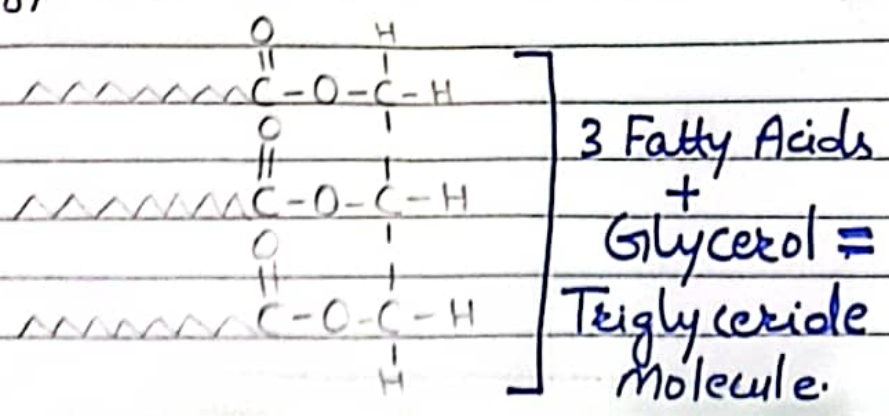 O H
C-O-C-H
O
C-O-C-H
O
C-O-C-H
H
3 Fatty Acids
+
Glycerol =
Triglyceride
Molecule.